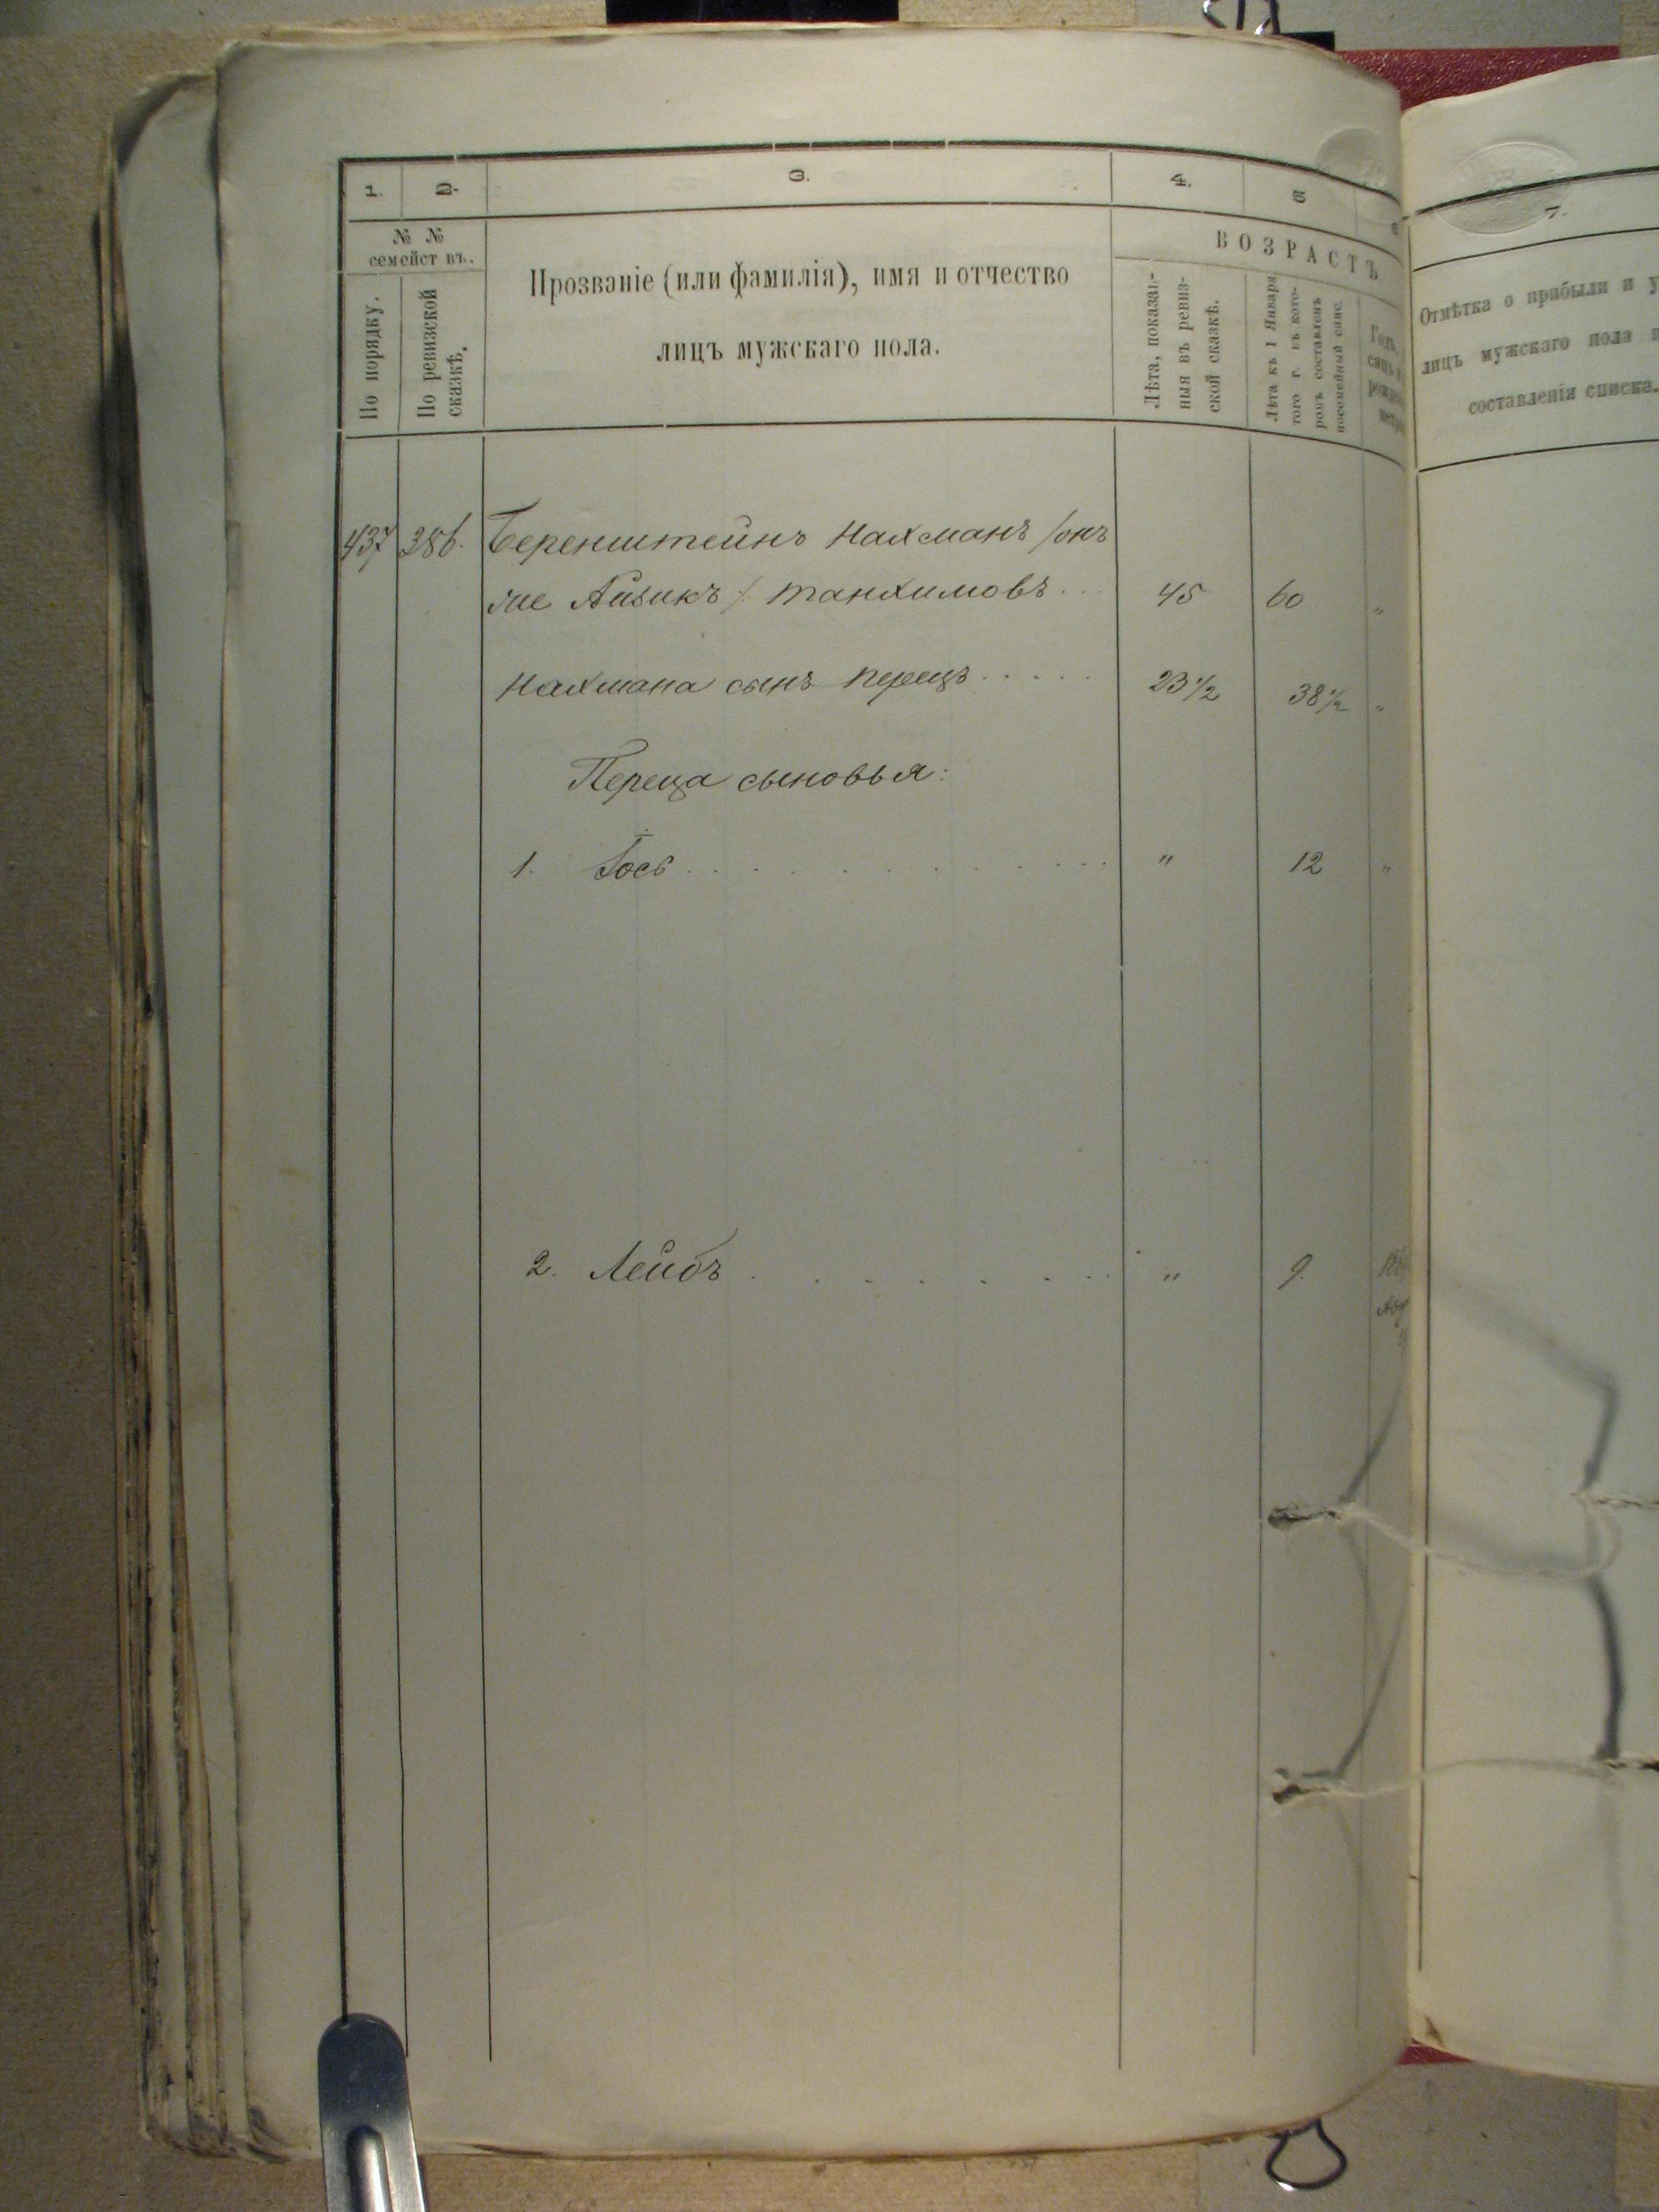 1. 2. 3. 4. 5
7.
№ № семейст въ.
По порядку.
По ревизской сказкѣ.
Прозваніе (или фамилія), имя и отчество
лицъ мужскаго пола.
ВОЗРАСТЪ
Лѣта, показан-
ныя въ ревиз-
ской сказкѣ.
Лѣта къ 1 Января
того г. въ кото-
ромъ составленъ
посемейный спис.
Отмѣтка о прибыли и у
лицъ мужскаго пола
составленія списка.
437 386. Беренштейнъ Нахманъ /онъ
же Айзикъ/. Танхимовъ .. 45 60 „
Нахмана сынъ Перецъ ..... 23½ 38½ „
Переца сыновья:
1. Іось .......... „ 12 „
2. Лейбъ ........ „ 9.